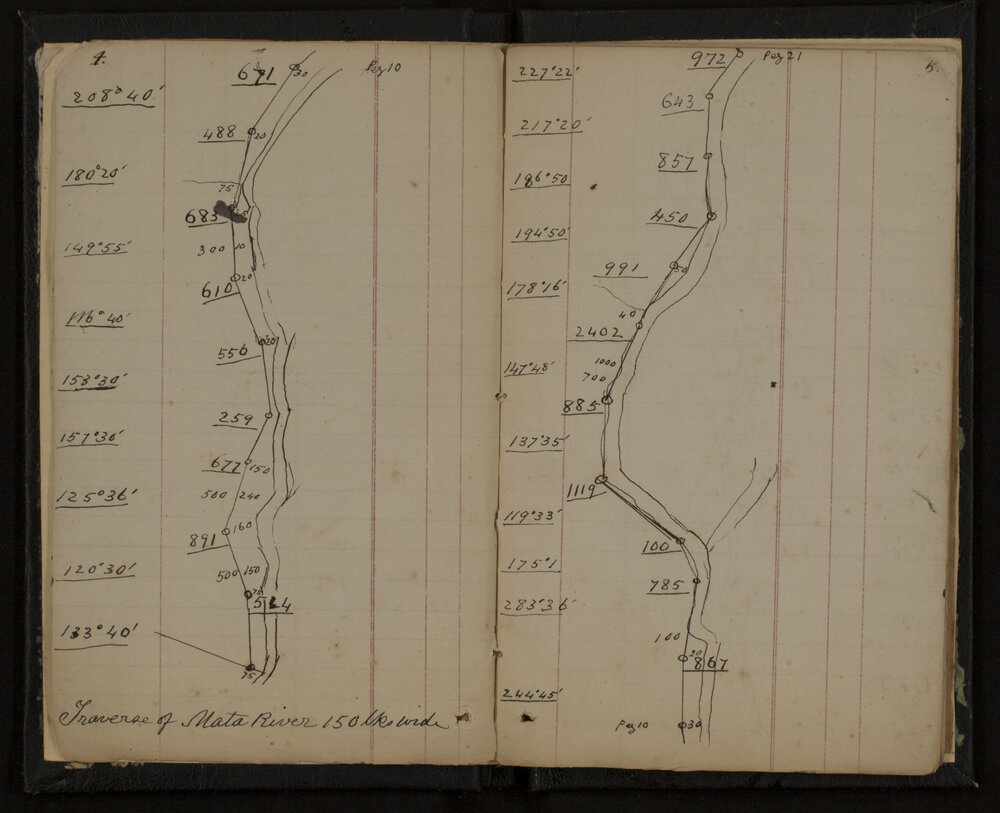 4.
671 30 Peg 10
208°40'
488 20
180°20'
75
683
149°55'
300 10
610 20
116°40'
556 20
158°30'
259
157°30'
677 150
125°36'
500 240
891 160
120°30'
500 150
75
524
133°40'
75
Traverse of Mata River 150 lks wide
5.
972 Peg 21
227°22'
643
217°20'
857
196°50'
450
194°50'
991 50
178°16'
40
2402
147°48'
1000
700
885
137°35'
1119
119°33'
100
175°1'
785
283°36'
100
867
244°45'
Peg 10 30